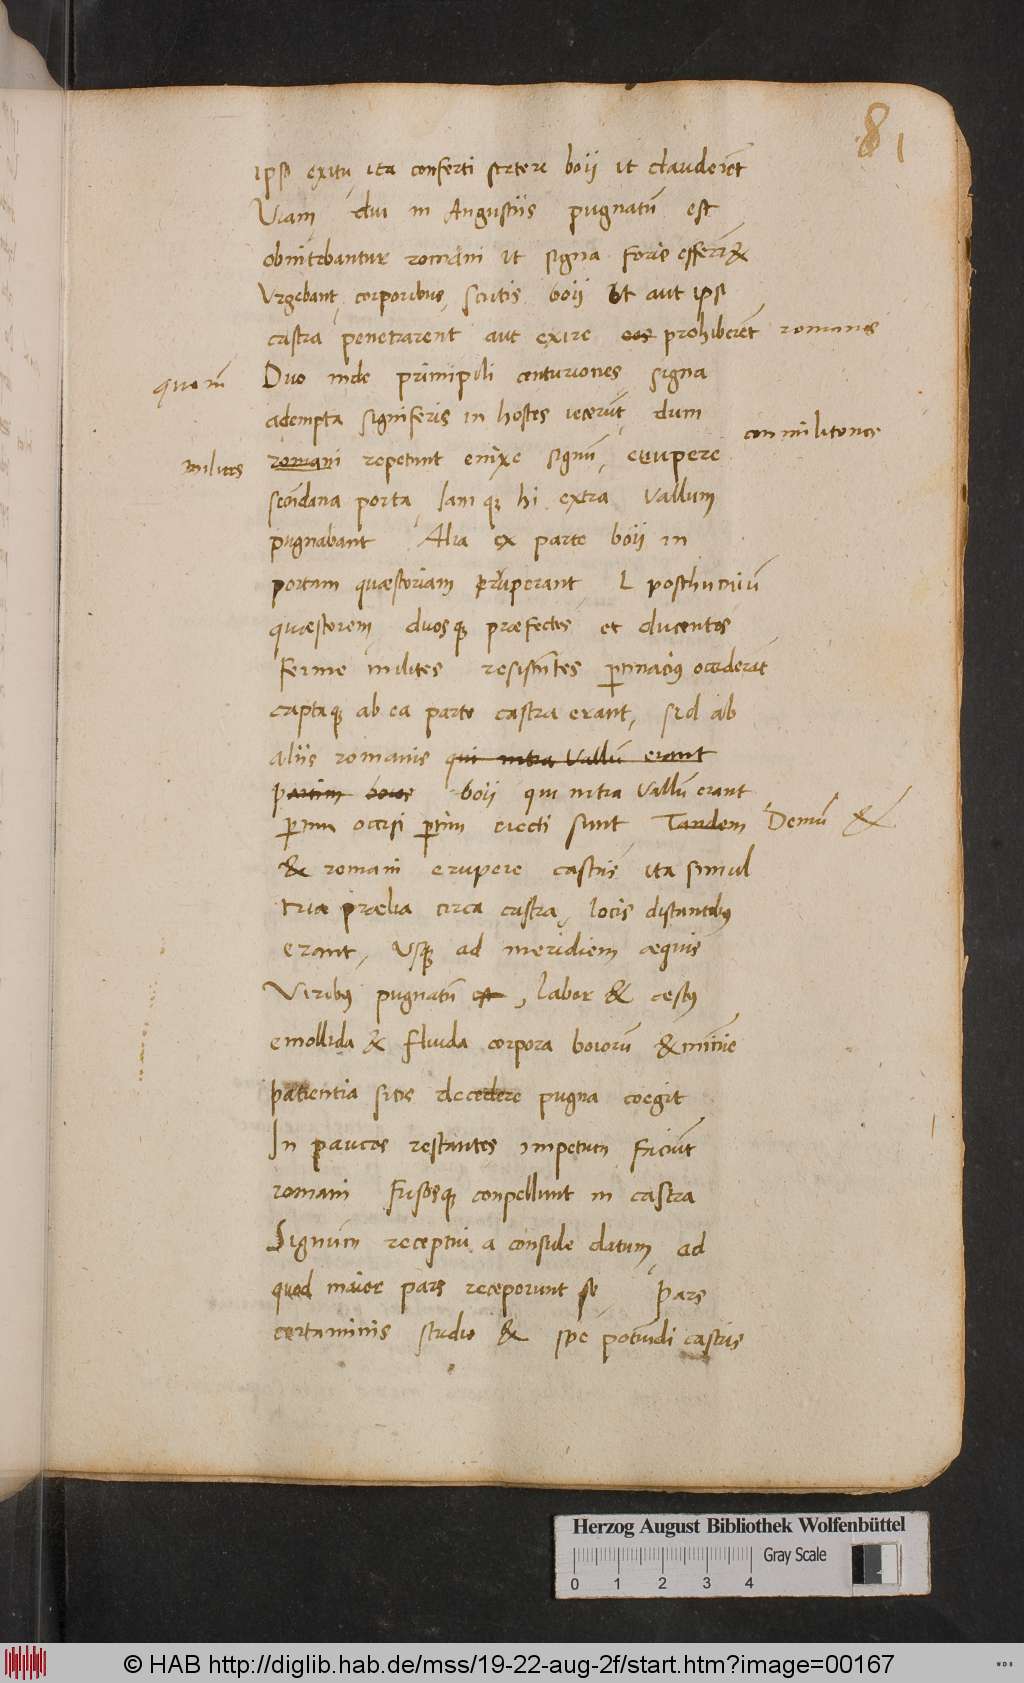 81
ipso exitu, ita conferti stetere boii ut clauderēt
Viam diu in Angustiis pugnatū est
obnitebantur romani ut signa foris efferr&
Vrgebant, corporibus, scutis boii Vt aut ipsi
castra penetrarent aut exire eos prohiberēt romanos
quom̄ Duo inde primipili centuriones, signa
adempta signiferis in hostes iecerūt, dum
commilitones
milites romani repetunt enixe signū, erupere
secūdana porta, Iamq; hi extra vallum
pugnabant Alia ex parte boii in
portam quæstoriam eruperant, L posthumiū
quæstorem, duosq; præfectos et ducentos
ferme milites resistētes ꝑtinaciꝰ occiderūt
captaq; ab ea parte castra erant, sed ab
aliis romanis qui intra Vallū erant
partim boios boii qui intra Vallū erant
ꝑtim occisi ꝑtim eiecti sunt Tandem Demū &
& romani erupere castris ita simul
tria prælia circa castra, locis distantibꝰ
erant, Vsq; ad meridiem æquis
Viribꝰ pugnatū est, labor & æstꝰ
emollida & fluida corpora boiorū & minīe
patientia sitis decedere pugna coegit
In paucos restantes impetum faciūt
romani fusosq; conpellunt in castra
Signum receptui a consule datum, ad
quod maior pars receperunt se, Pars
certaminis studio & spe potiūdi castris
Herzog August Bibliothek Wolfenbüttel
Gray Scale
0 1 2 3 4
© HAB http://diglib.hab.de/mss/19-22-aug-2f/start.htm?image=00167